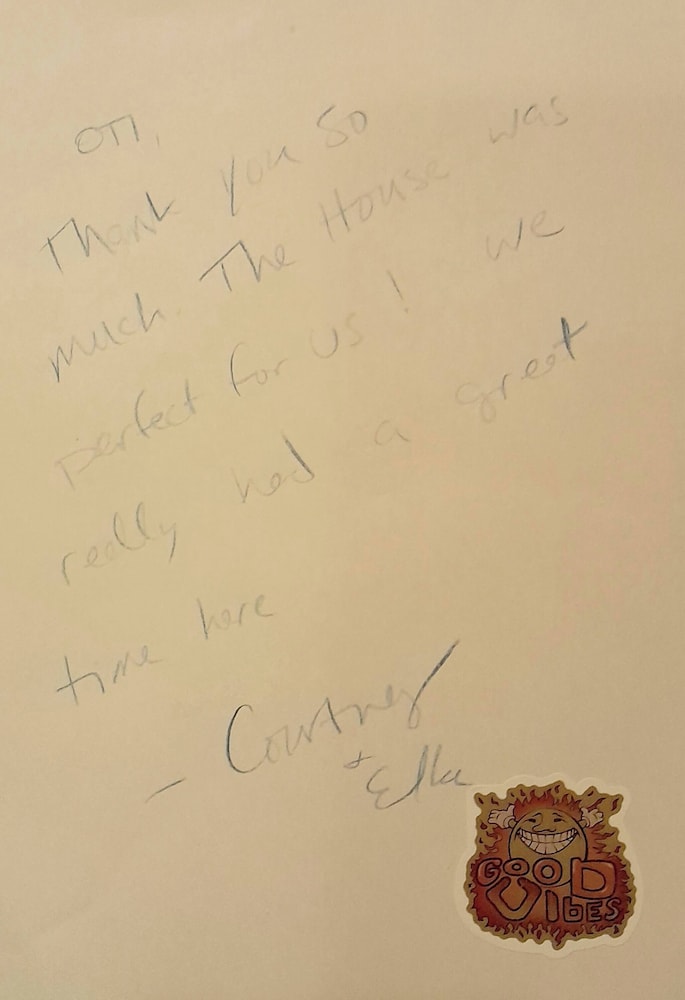 OTI,
Thank you so
much. The House was
perfect for us! we
really had a great
time here
- Courtney
+ Elka
GOOD
VIbES